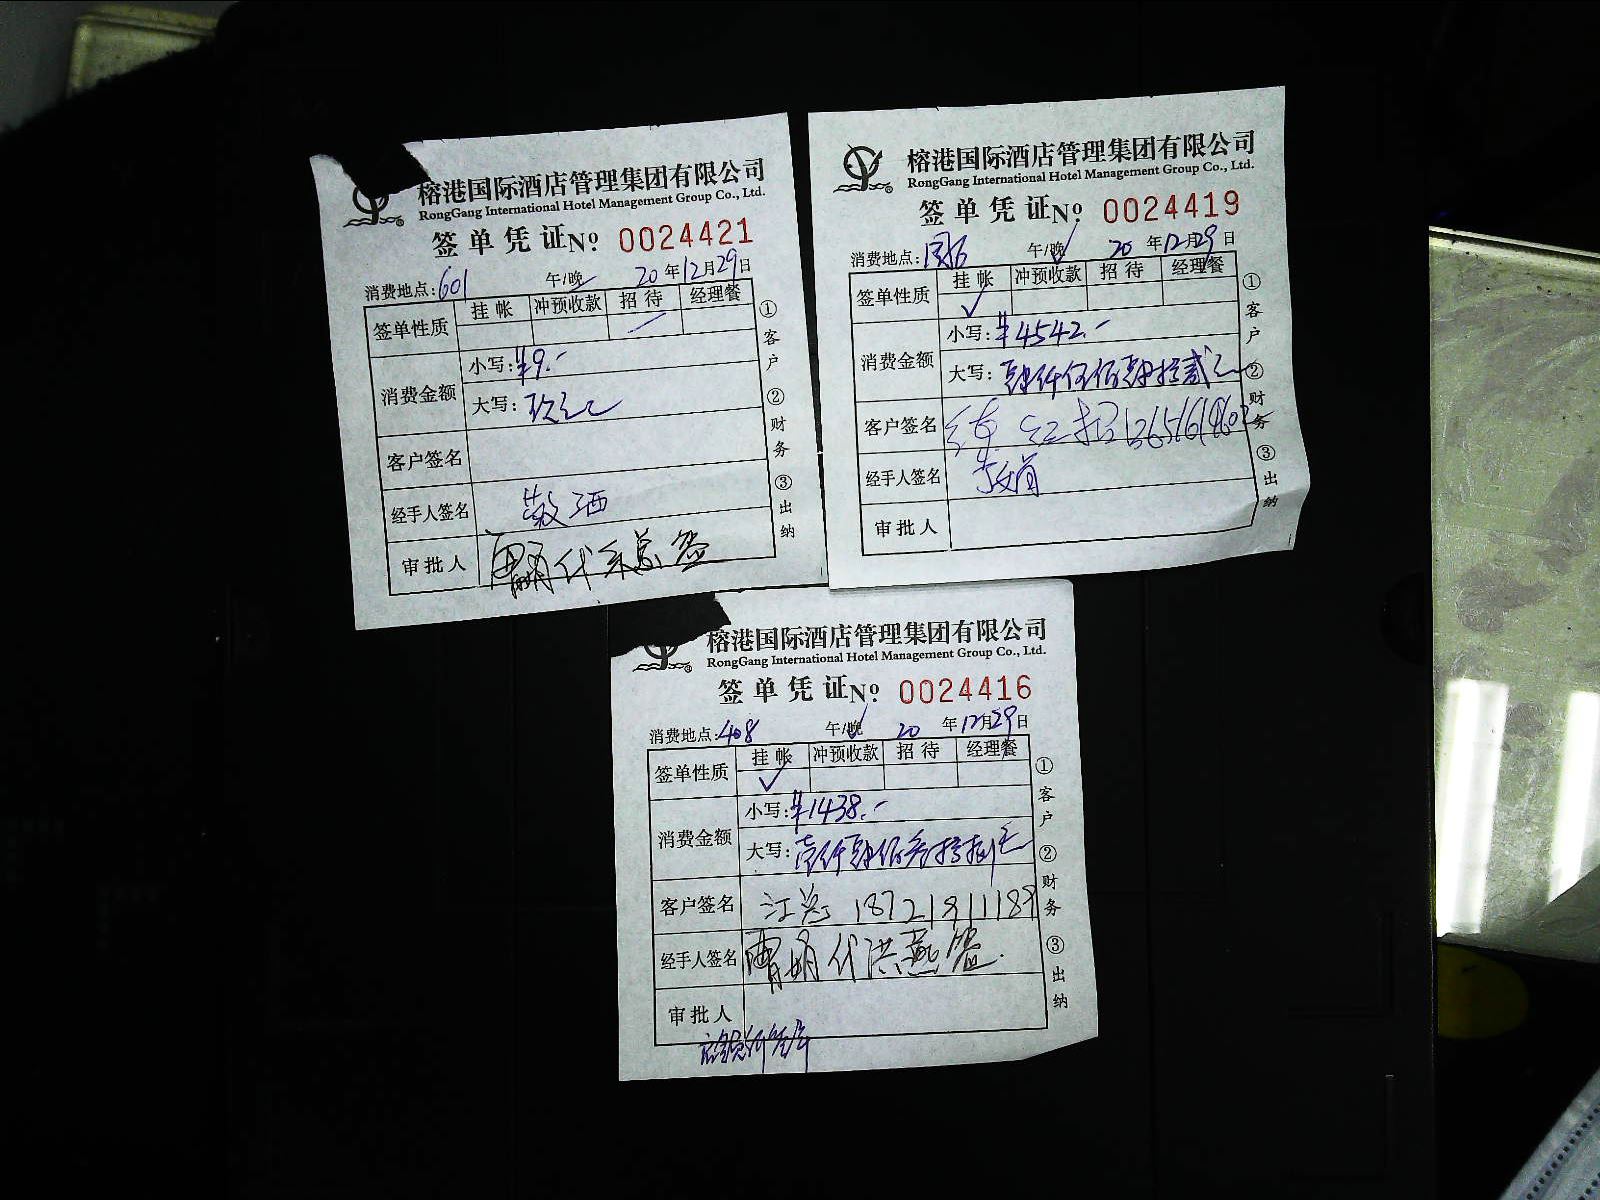 榕港国际酒店管理集团有限公司
RongGang International Hotel Management Group Co., Ltd.
签单凭证No 0024421
消费地点:601 午/晚 20年12月29日
签单性质 挂帐 冲预收款 招待 经理餐
消费金额
小写:¥9.-
大写:玖元
客户签名
经手人签名 散酒
审批人
①客户 ②财务 ③出纳
榕港国际酒店管理集团有限公司
RongGang International Hotel Management Group Co., Ltd.
签单凭证No 0024419
消费地点: 午/晚 20年12月29日
签单性质 挂帐 冲预收款 招待 经理餐
消费金额
小写:¥4542.-
大写:肆仟伍佰肆拾贰元
客户签名
经手人签名
审批人
①客户 ②财务 ③出纳
榕港国际酒店管理集团有限公司
RongGang International Hotel Management Group Co., Ltd.
签单凭证No 0024416
消费地点:408 午/晚 20年12月29日
签单性质 挂帐 冲预收款 招待 经理餐
消费金额
小写:¥1438.-
大写:壹仟肆佰叁拾捌元
客户签名 江总 18721911189
经手人签名 代洪燕签
审批人
①客户 ②财务 ③出纳